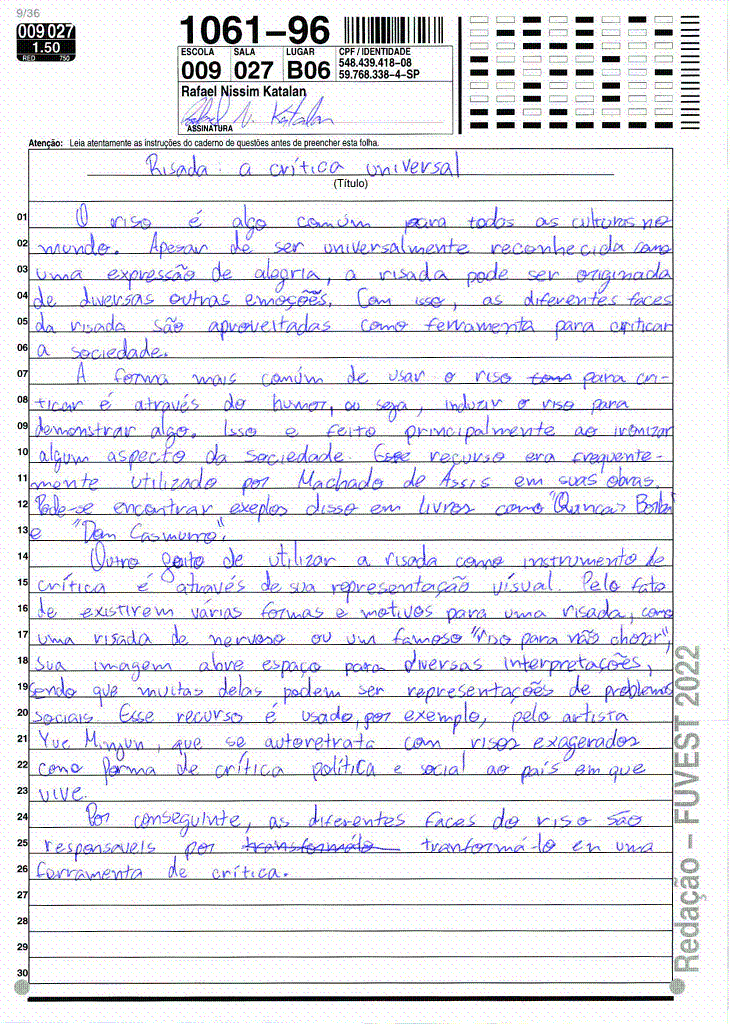 9/36
009 027
1.50
RED 750
1061-96
ESCOLA SALA LUGAR CPF / IDENTIDADE
009 027 B06 548.439.418-08
59.768.338-4-SP
Rafael Nissim Katalan
Rafael N. Katalan
ASSINATURA
Atenção: Leia atentamente as instruções do caderno de questões antes de preencher esta folha.
Risada: a crítica universal
(Título)
01 O riso é algo comúm para todas as culturas no
02 mundo. Apesar de ser universalmente reconhecida como
03 uma expressão de alegria, a risada pode ser originada
04 de diversas outras emoções. Com isso, as diferentes faces
05 da risada são aproveitadas como ferramenta para criticar
06 a sociedade.
07 A forma mais comúm de usar o riso com para cri-
08 ticar é através do humor, ou seja, induzir o riso para
09 demonstrar algo. Isso e feito principalmente ao ironizar
10 algum aspecto da sociedade. Esse recurso era frequente-
11 mente utilizado por Machado de Assis em suas obras.
12 Pode-se encontrar exeplos disso em livros como "Quincas Borba"
13 e "Dom Casmurro".
14 Outro jeito de utilizar a risada como instrumento de
15 crítica é através de sua representação visual. Pelo fato
16 de existirem varias formas e motivos para uma risada, como
17 uma risada de nervoso ou um famoso "riso para não chorar",
18 sua imagem abre espaço para diversas interpretações,
19 sendo que muitas delas podem ser representações de problemas
20 sociais. Esse recurso é usado, por exemplo, pelo artista
21 Yue Minjun, que se autoretrata com risos exagerados
22 como forma de crítica política e social ao país em que
23 vive.
24 Por conseguinte, as diferentes faces do riso são
25 responsaveis por transformálo tranformá-lo en uma
26 ferramenta de crítica.
27
28
29
30
Redação – FUVEST 2022